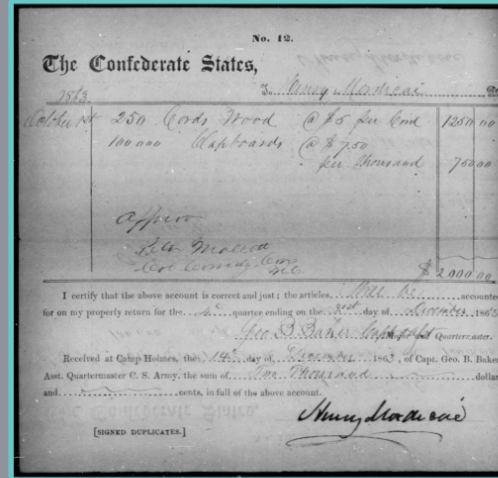 No. 12.
The Confederate States,
To Henry Mordecai Dr
1863
October 1st 250 Cords Wood @ $5 per Cord 1250 00
100 000 Clapboards @ $7.50
per thousand 750 00
Approve
Peter Mallett
Col Comdg
N.C.
$ 2.000.00
I certify that the above account is correct and just; the articles, Will be accounted
for on my property return for the quarter ending on the 31st day of December 186
Geo B Baker Capt & Quartermaster.
Received at Camp Holmes, the 14th day of December 1863, of Capt. Geo. B. Baker
Asst. Quartermaster C. S. Army, the sum of Two Thousand dollar
and cents, in full of the above account.
Henry Mordecai
[SIGNED DUPLICATES.]